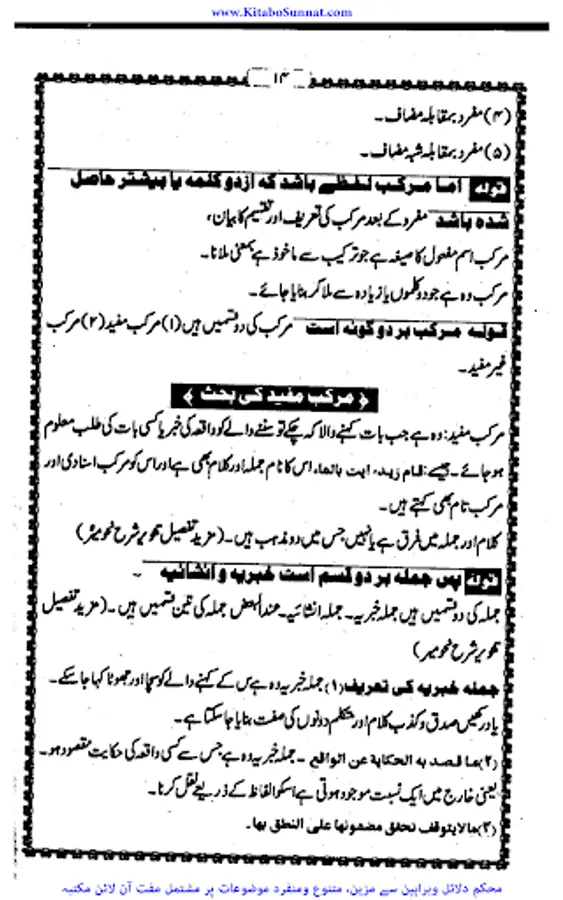 www.KitaboSunnat.com
۱۴
(۴) مفرد بمقابلہ مضاف۔
(۵) مفرد بمقابلہ شبہ مضاف۔
قولہ اما مرکب لفظے باشد کہ از دو کلمہ یا بیشتر حاصل
شدہ باشد مفرد کے بعد مرکب کی تعریف اور تقسیم کا بیان،
مرکب اسم مفعول کا صیغہ ہے جو ترکیب سے ماخوذ ہے بمعنی ملانا۔
مرکب وہ ہے جو دو کلموں یا زیادہ سے ملا کر بنایا جائے۔
قولہ مرکب بر دو گونہ است مرکب کی دو قسمیں ہیں (۱) مرکب مفید (۲) مرکب
غیر مفید۔
﴿ مرکب مفید کی بحث ﴾
مرکب مفید: وہ ہے جب بات کہنے والا کہہ چکے تو سننے والے کو واقعہ کی خبر یا کسی بات کی طلب معلوم
ہو جائے۔ جیسے: قام زید، ایت بالماء، اس کا نام جملہ اور کلام بھی ہے اور اس کو مرکب اسنادی اور
مرکب تام بھی کہتے ہیں۔
کلام اور جملہ میں فرق ہے یا نہیں جس میں دو مذہب ہیں۔ (مزید تفصیل تنویر شرح نحومیر)
قولہ پس جملہ بر دو قسم است خبریہ و انشائیہ ۔
جملہ کی دو قسمیں ہیں جملہ خبریہ۔ جملہ انشائیہ۔ عند البعض جملہ کی تین قسمیں ہیں۔ (مزید تفصیل
تنویر شرح نحومیر)
جملہ خبریہ کی تعریف (۱) جملہ خبریہ وہ ہے جس کے کہنے والے کو سچا اور جھوٹا کہا جا سکے۔
یاد رکھیں صدق و کذب کلام اور متکلم دونوں کی صفت بنایا جا سکتا ہے۔
(۲) ما قصد بہ الحکایة عن الواقع ۔ جملہ خبریہ وہ ہے جس سے کسی واقعہ کی حکایت مقصود ہو۔
یعنی خارج میں ایک نسبت موجود ہوتی ہے اسکو الفاظ کے ذریعے نقل کرنا۔
(۳) مالا یتوقف تحقق مضمونها علی النطق بها۔
محکم دلائل وبراہین سے مزین، متنوع ومنفرد موضوعات پر مشتمل مفت آن لائن مکتبہ